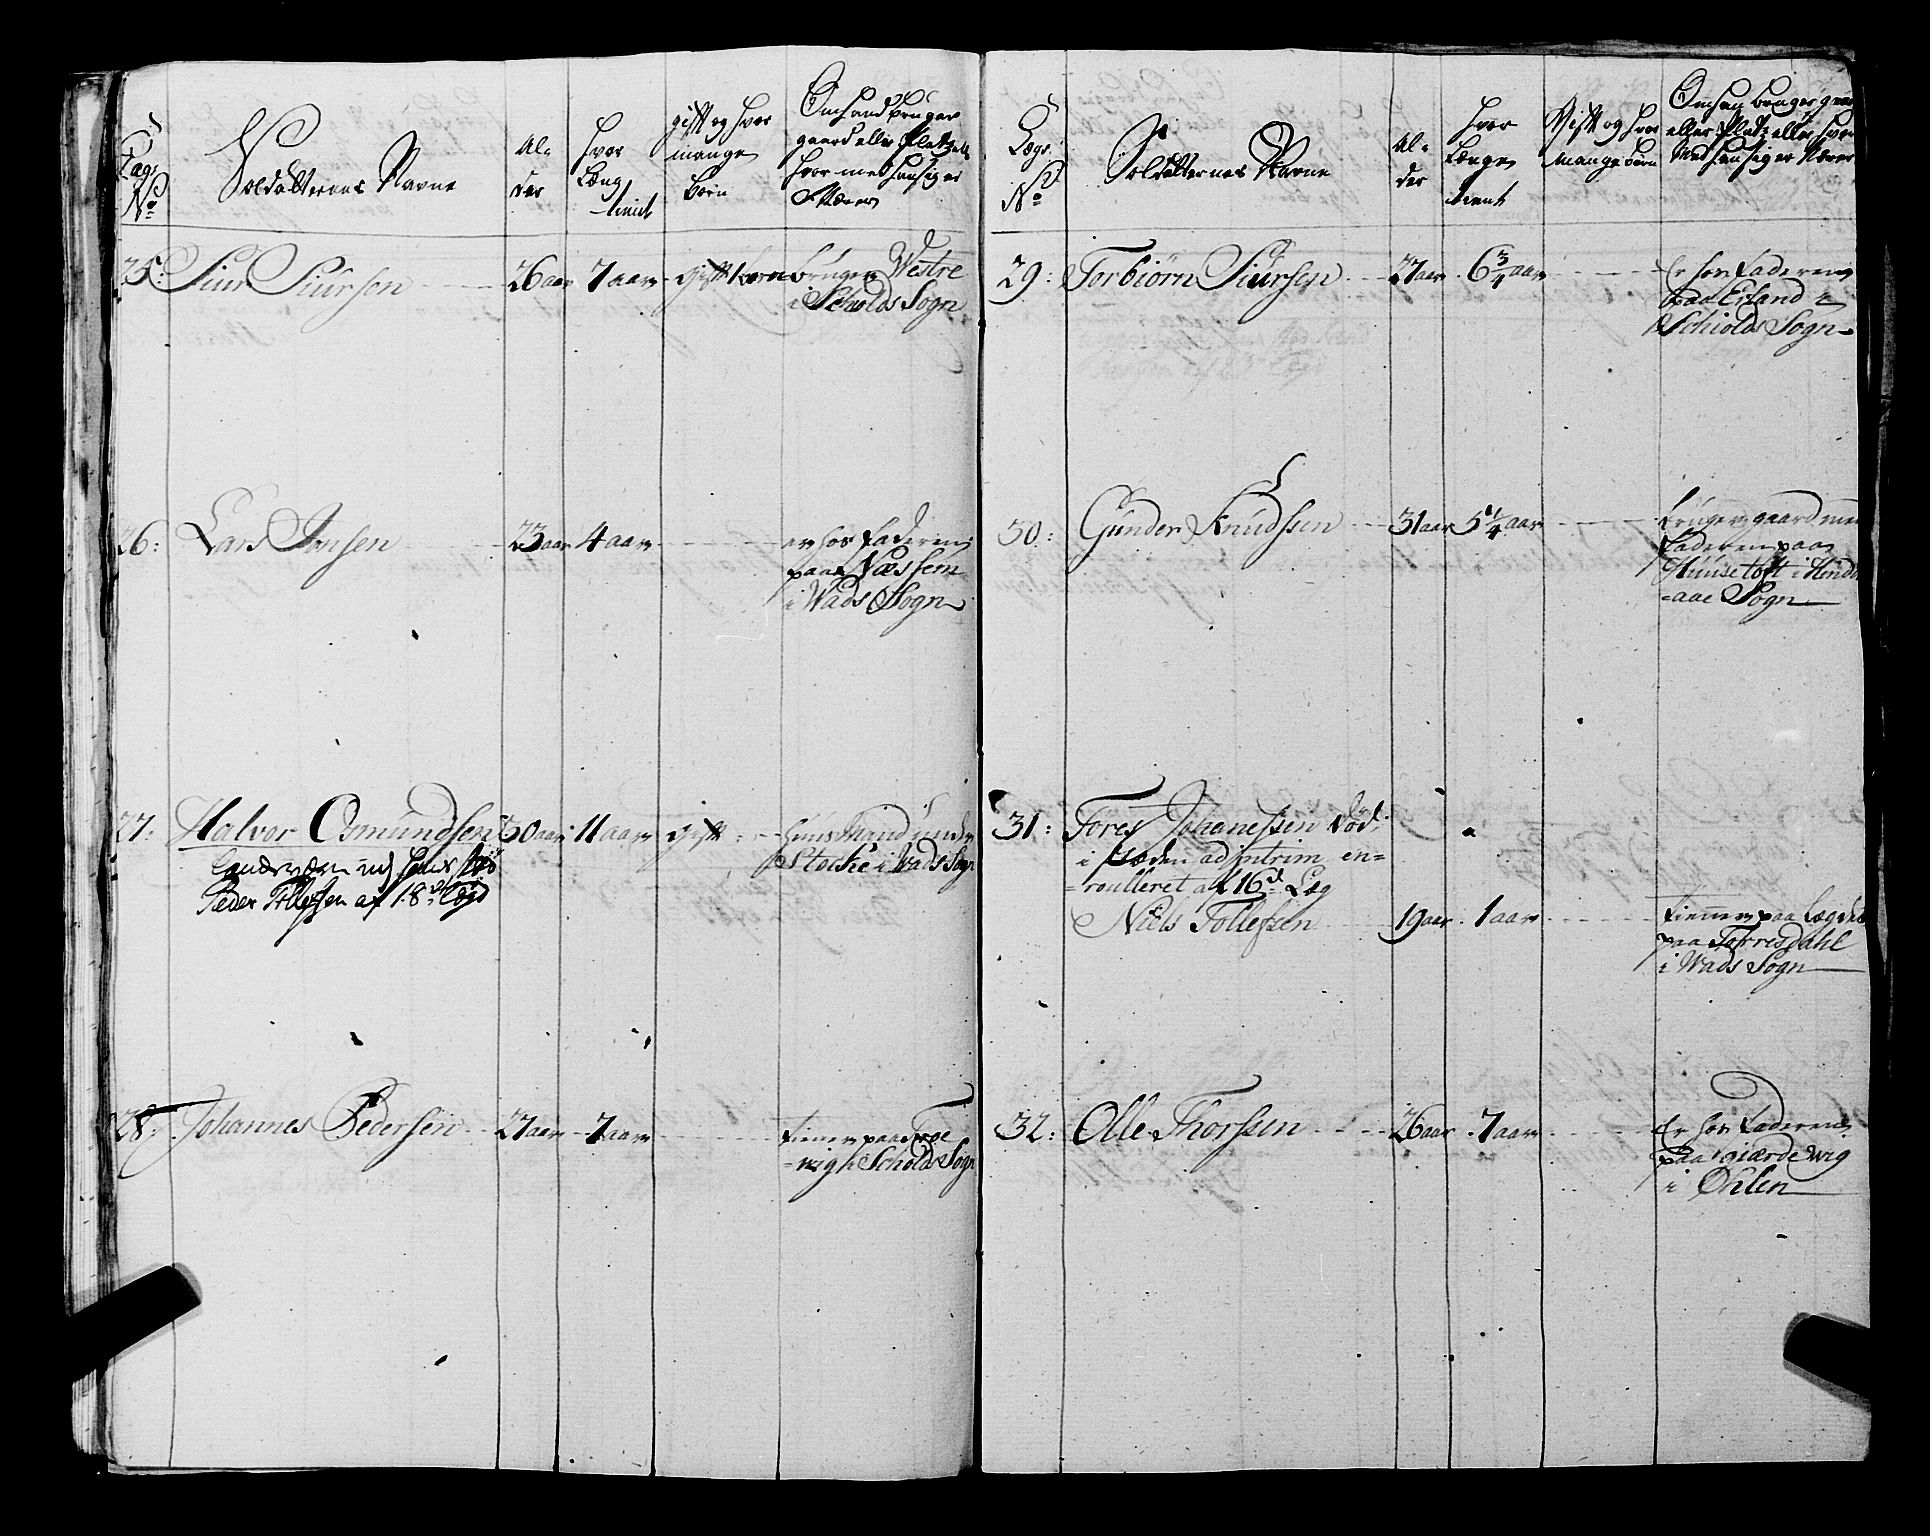 Læg
No
Soldatternes Navne
Al-
der
Hvor
Læng
tient
gift og hvor
mange
børn
Om hand bruger
gaard eller Platz ell
hvor med hand sig er
Nærer
25: Siur Siursen 26 aar 7 aar gift 1 barn bruger Westre
i Scholds Sogn
26: Lars Jonsen 23 aar 4 aar er hos Faderen
paa Næssem
i Wads Sogn
27: Halvor Osmundsen 30 aar 11 aar gift huusmand under
Stocke i Wads Sogn
Landværn
Peder Tollefsen af 18de Lægd
28: Johannes Pedersen 27 aar 7 aar tiener paa Troe
-wigh i Scholds Sogn
Lægs
No
Soldatternes Navne
Al-
der
Hvor
Længe
tient
Gift og hvor
mange børn
Om han bruger gaar
eller Platz eller hvor
Med han sig er Nærer
29: Torbiørn Siursen 27 aar 6 3/4 aar Er hos Faderen
paa Erland i
Schiolds Sogn
30: Gunder Knudssen 31 aar 5 1/4 aar bruger gaard med
Faderen paa
Huusetoft i Hind
=aae Sogn
31: Tores Johanessen Død
i Staden ad intrim en=
=roulleret af 16de Læg
Niels Tollefsen 19 aar 1 aar tiener paa Lægdet
paa Torresdahl
i Wads Sogn
32: Olle Thorssen 26 aar 7 aar Er hos Faderen
paa giærdewig
i Øhlen